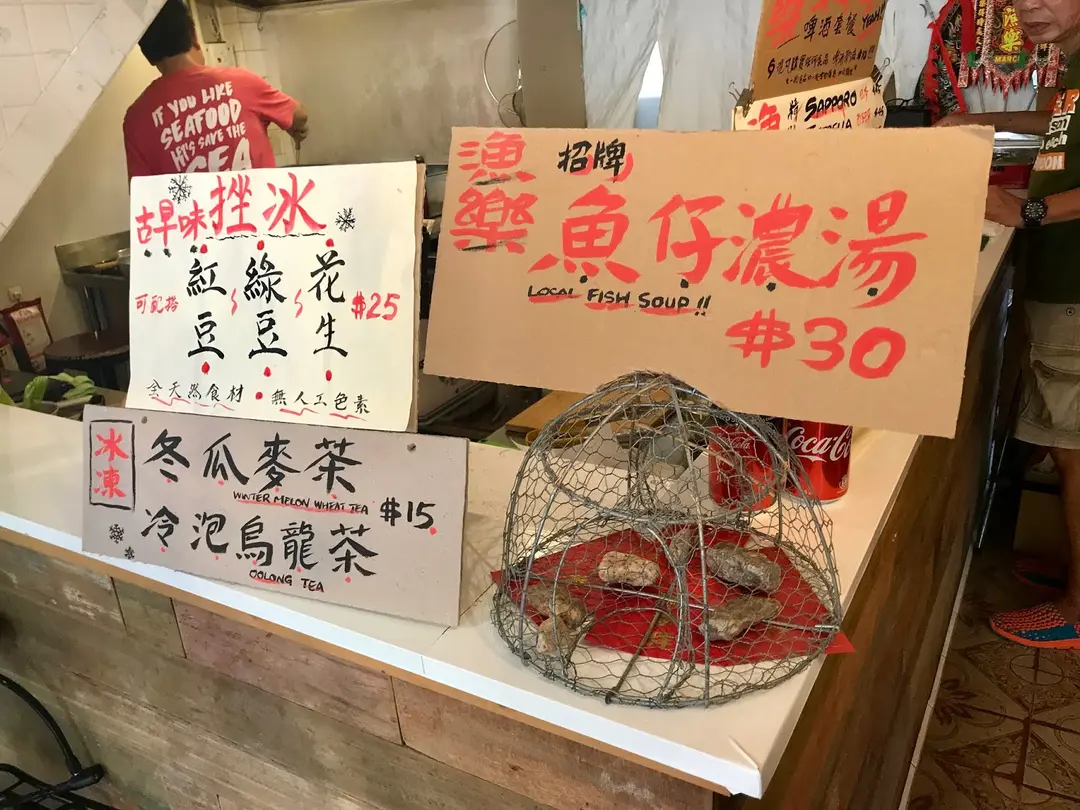 IF YOU LIKE
SEAFOOD
LET'S SAVE THE
SEA
啤酒
SAPPORO
MARCI
漁樂
招牌
魚仔濃湯
LOCAL FISH SOUP!!
$30
古早味挫冰
可配搭
紅豆、綠豆、花生
$25
全天然食材 • 無人工色素
冰凍
冬瓜麥茶
WINTER MELON WHEAT TEA
$15
冷泡烏龍茶
OOLONG TEA
Coca-Cola
Coca-Cola